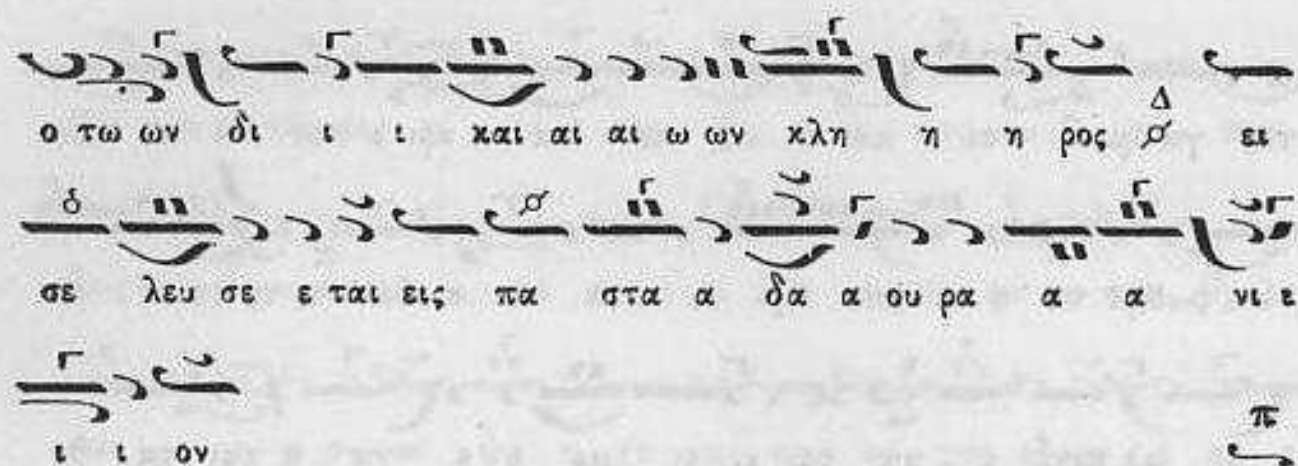 ο τω ων δι ι ι και αι αι ω ων κλη η η ρος Δ ει
σε λευ σε ε ται εις πα στα α δα α ου ρα α α νι ι
ι ι ον π